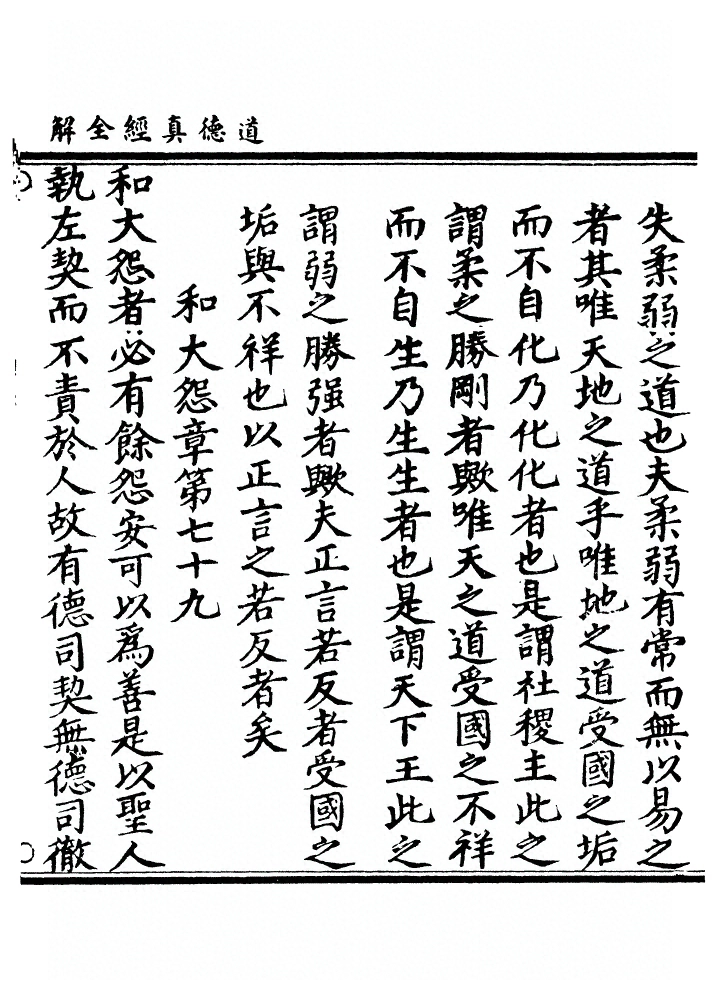 道德真經全解
失柔弱之道也夫柔弱有常而無以易之
者其唯天地之道乎唯地之道受國之垢
而不自化乃化化者也是謂社稷主此之
謂柔之勝剛者歟唯天之道受國之不祥
而不自生乃生生者也是謂天下王此之
謂弱之勝强者歟夫正言若反者受國之
垢與不祥也以正言之若反者矣
和大怨章第七十九
和大怨者必有餘怨安可以爲善是以聖人
執左契而不責於人故有德司契無德司徹